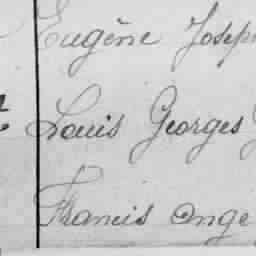 Eugène Joseph
Louis Georges
Francis Ange